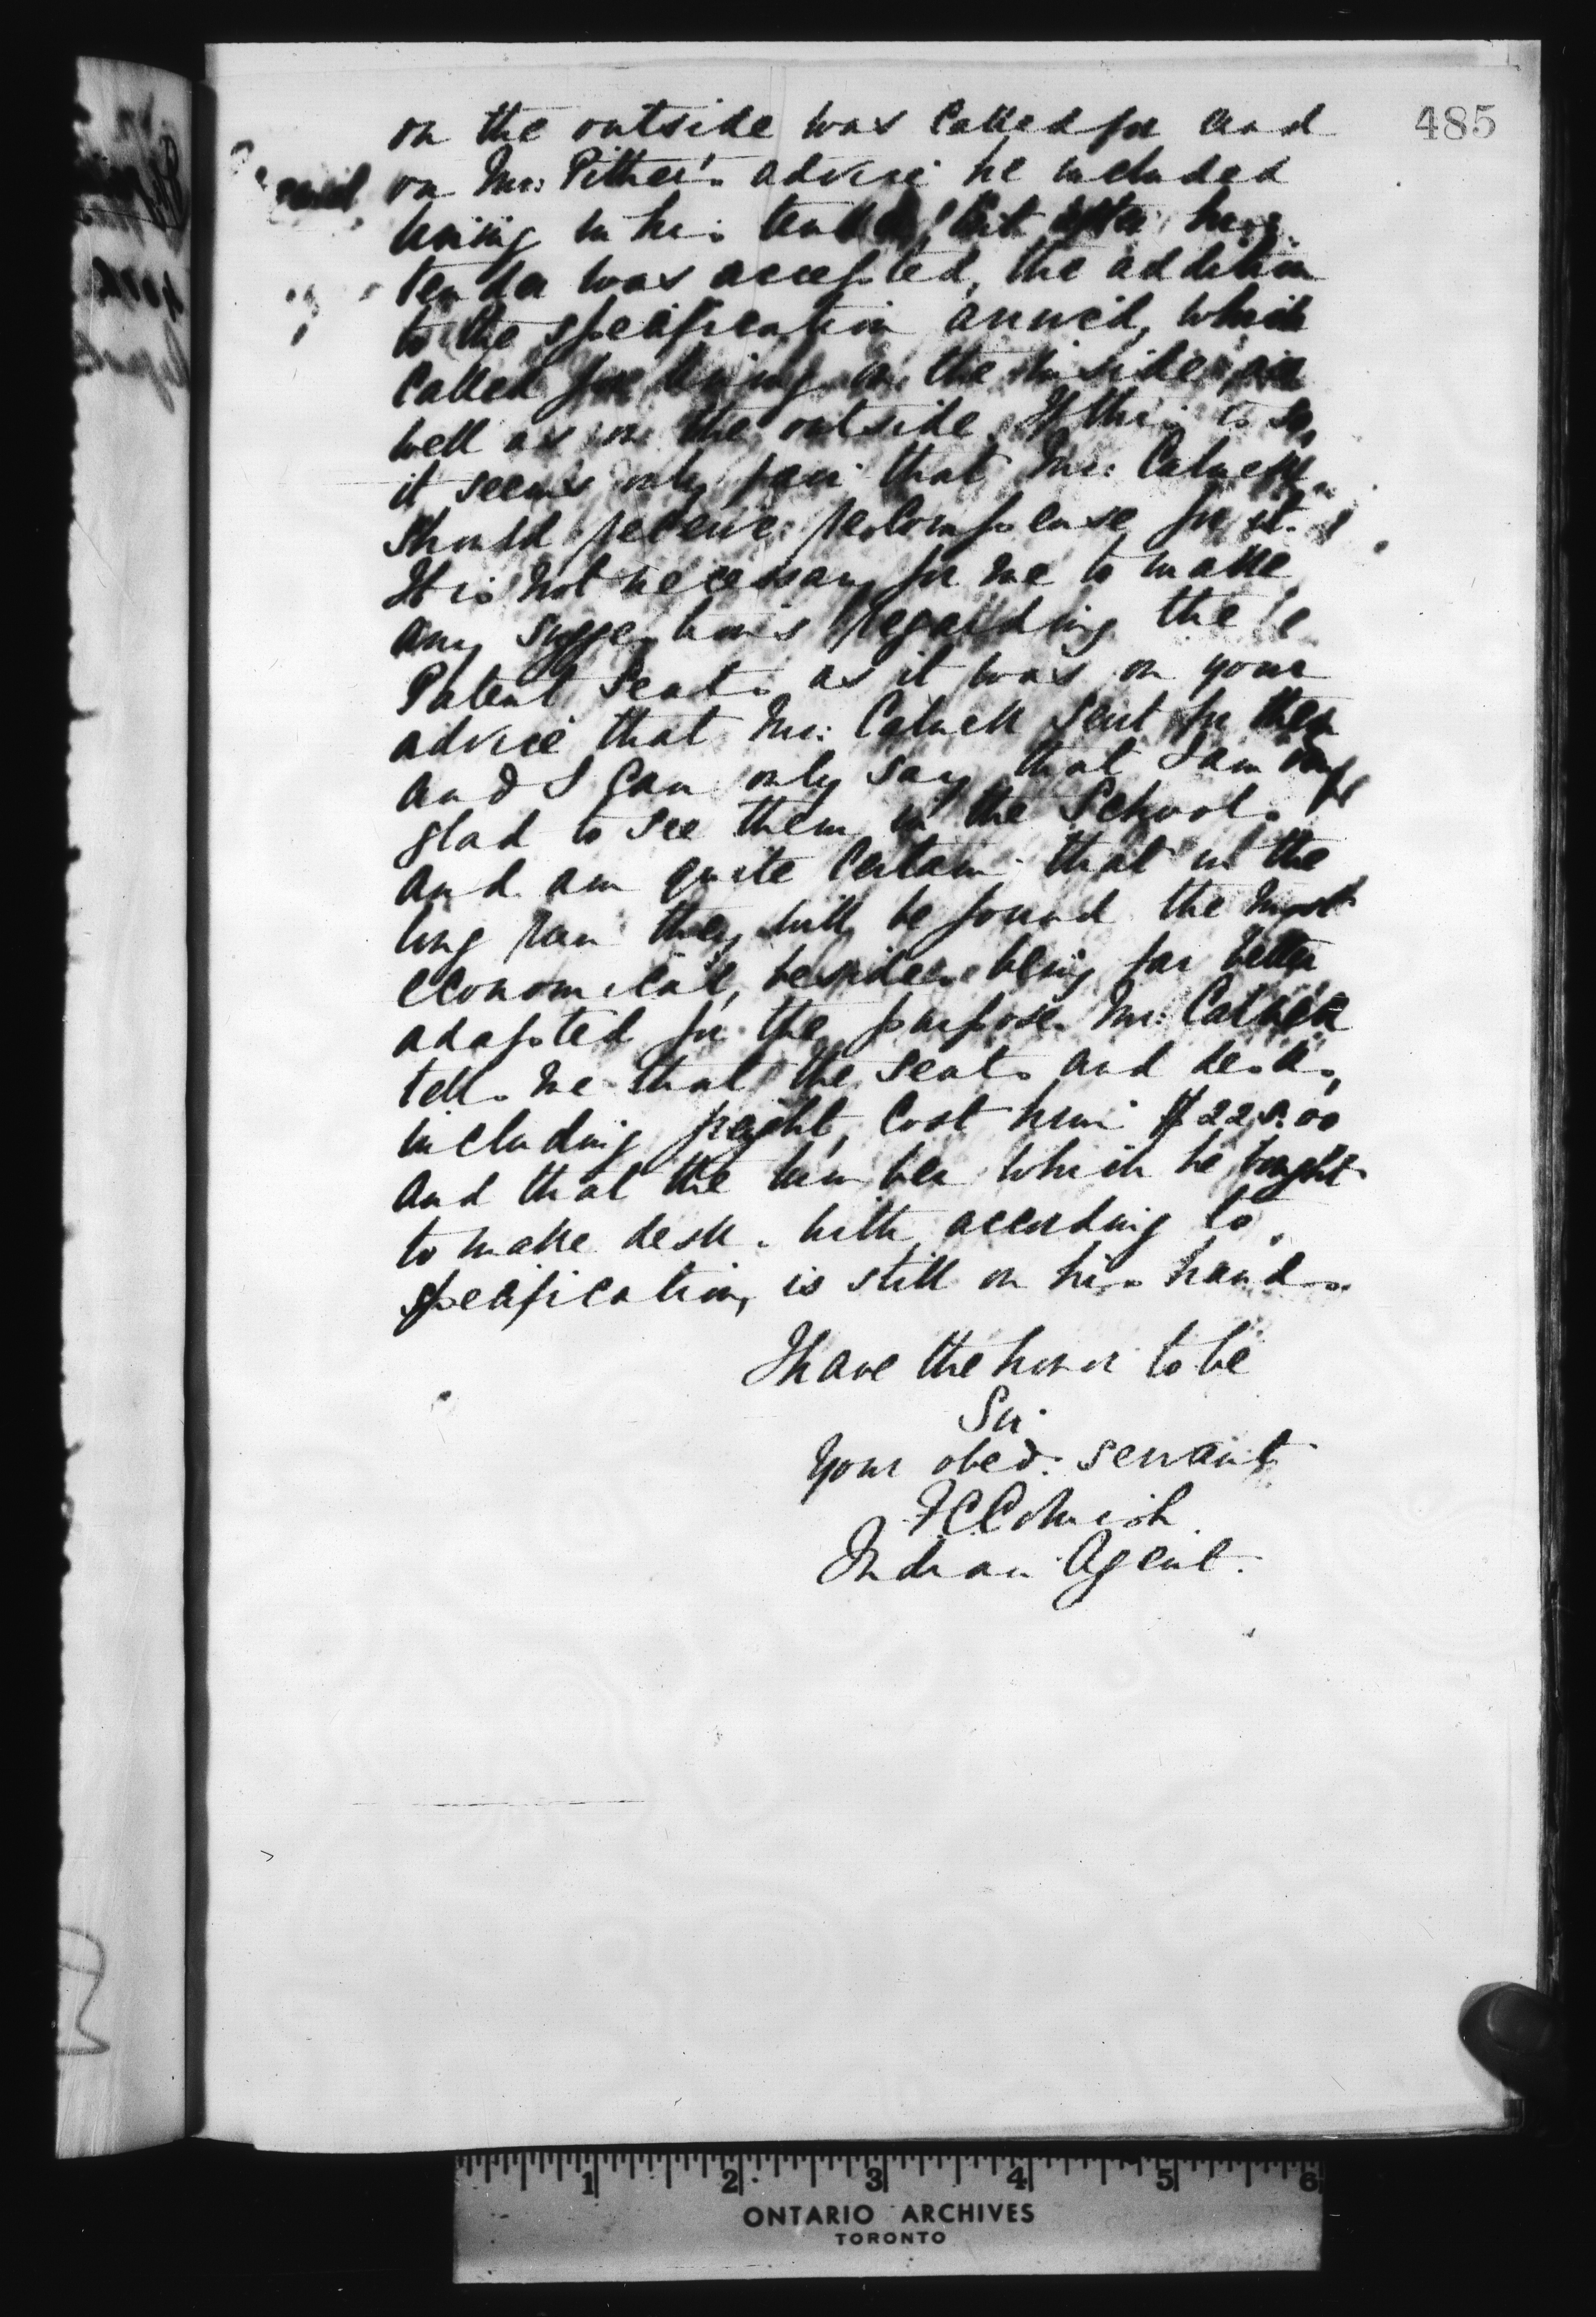 485
on the outside was called for and
on Mr: Pither's advice he included
lining in his tender, but after his
tender was accepted, the addition
to the specification arrived, which
called for lining on the inside as
well as on the outside. If this is so,
it seems only fair that Mr:
should receive recompense for it.
It is not necessary for me to make
any suggestions regarding the
Patent Seats as it was on your
advice that Mr: sent for them
and I can only say that I am very
glad to see them in the Schools
and am quite certain that in the
long run they will be found the most
economical, besides being far better
adapted for the purpose. Mr:
tells me that the seats and desks,
including freight, cost him
and that the lumber which he bought
to make desks with according to
specification, is still on his hands.
I have the honor to be
Sir
Your obed: servant
Indian Agent.
1 2 3 4 5 6
ONTARIO ARCHIVES
TORONTO